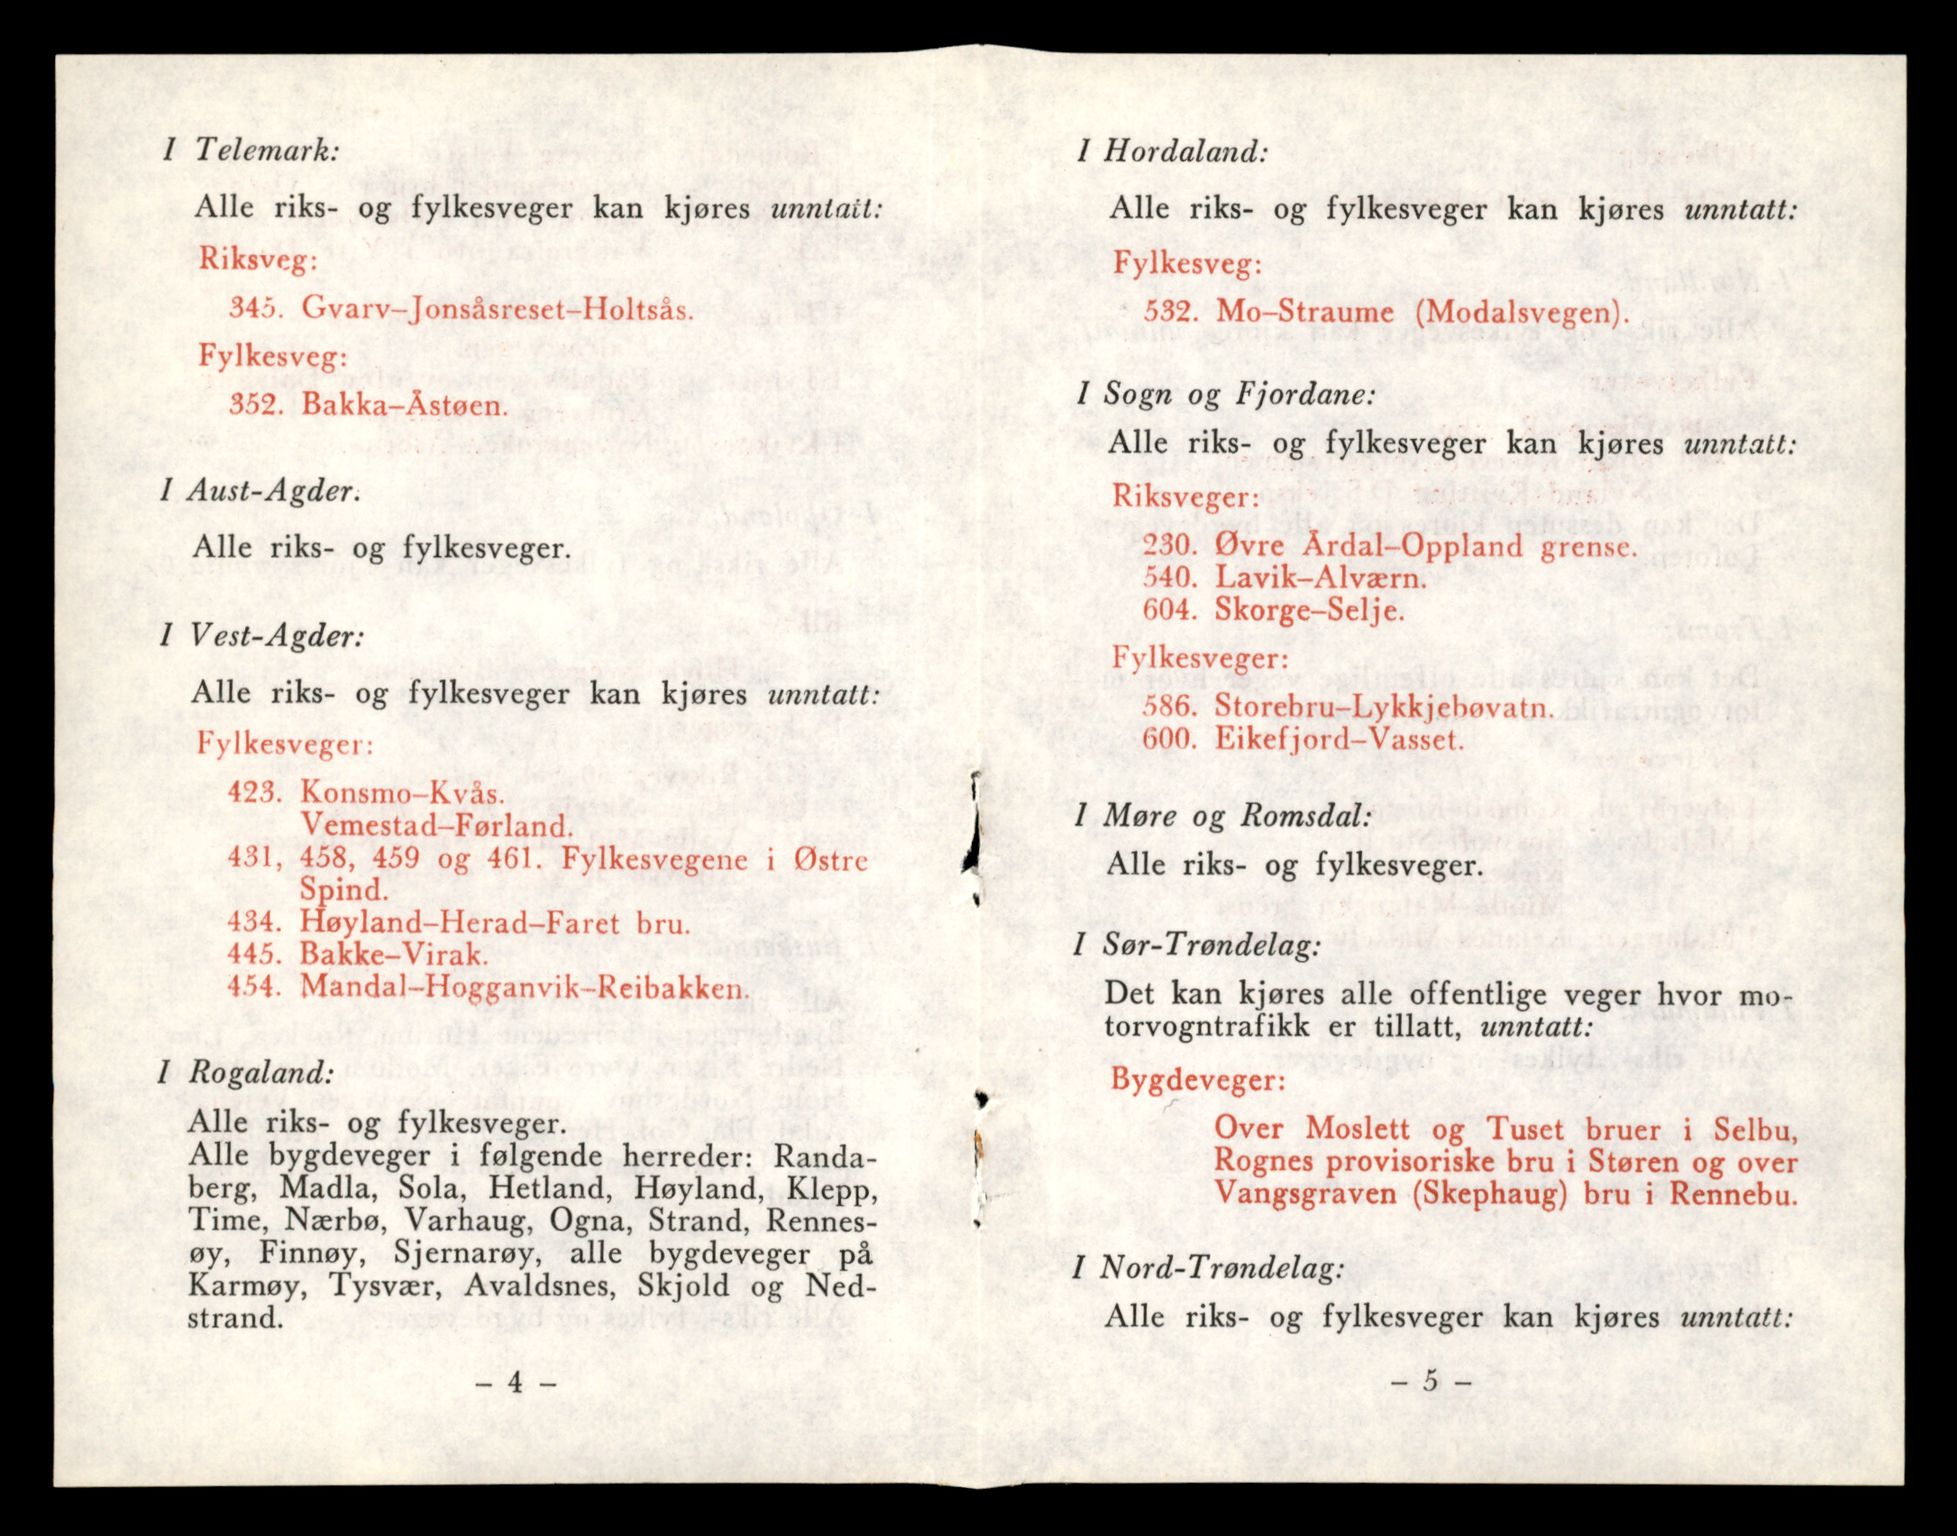 I Telemark:
Alle riks- og fylkesveger kan kjøres unntatt:
Riksveg:
345. Gvarv–Jonsåsreset–Holtsås.
Fylkesveg:
352. Bakka–Åstøen.
I Aust-Agder:
Alle riks- og fylkesveger.
I Vest-Agder:
Alle riks- og fylkesveger kan kjøres unntatt:
Fylkesveger:
423. Konsmo–Kvås.
Vemestad–Førland.
431, 458, 459 og 461. Fylkesvegene i Østre
Spind.
434. Høyland–Herad–Faret bru.
445. Bakke–Virak.
454. Mandal–Hogganvik–Reibakken.
I Rogaland:
Alle riks- og fylkesveger.
Alle bygdeveger i følgende herreder: Randa-
berg, Madla, Sola, Hetland, Høyland, Klepp,
Time, Nærbø, Varhaug, Ogna, Strand, Rennes-
øy, Finnøy, Sjernarøy, alle bygdeveger på
Karmøy, Tysvær, Avaldsnes, Skjold og Ned-
strand.
– 4 –
I Hordaland:
Alle riks- og fylkesveger kan kjøres unntatt:
Fylkesveg:
532. Mo–Straume (Modalsvegen).
I Sogn og Fjordane:
Alle riks- og fylkesveger kan kjøres unntatt:
Riksveger:
230. Øvre Årdal–Oppland grense.
540. Lavik–Alværn.
604. Skorge–Selje.
Fylkesveger:
586. Storebru–Lykkjebøvatn.
600. Eikefjord–Vasset.
I Møre og Romsdal:
Alle riks- og fylkesveger.
I Sør-Trøndelag:
Det kan kjøres alle offentlige veger hvor mo-
torvogntrafikk er tillatt, unntatt:
Bygdeveger:
Over Moslett og Tuset bruer i Selbu,
Rognes provisoriske bru i Støren og over
Vangsgraven (Skephaug) bru i Rennebu.
I Nord-Trøndelag:
Alle riks- og fylkesveger kan kjøres unntatt:
– 5 –